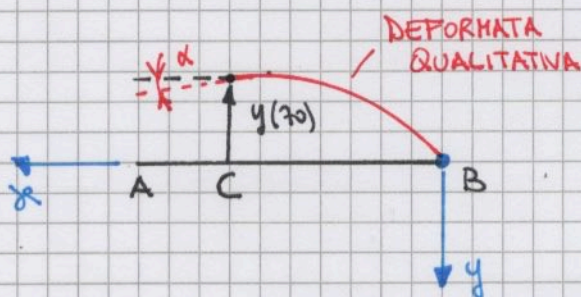 DEFORMATA
QUALITATIVA
α
y(70)
A
C
B
x
y